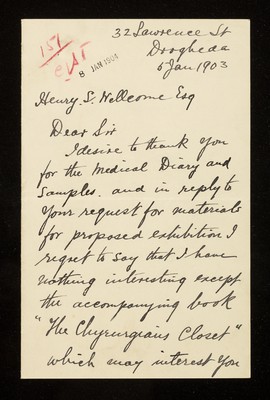 32 Lawrence St
Drogheda
5 Jan 1903
151
8 JAN 1904
Henry. S. Wellcome Esq
Dear Sir
I desire to thank you
for the Medical Diary and
Samples. and in reply to
your request for materials
for proposed exhibition I
regret to say that I have
nothing interesting except
the accompanying book
"The Chyrurgians Closet"
which may interest you